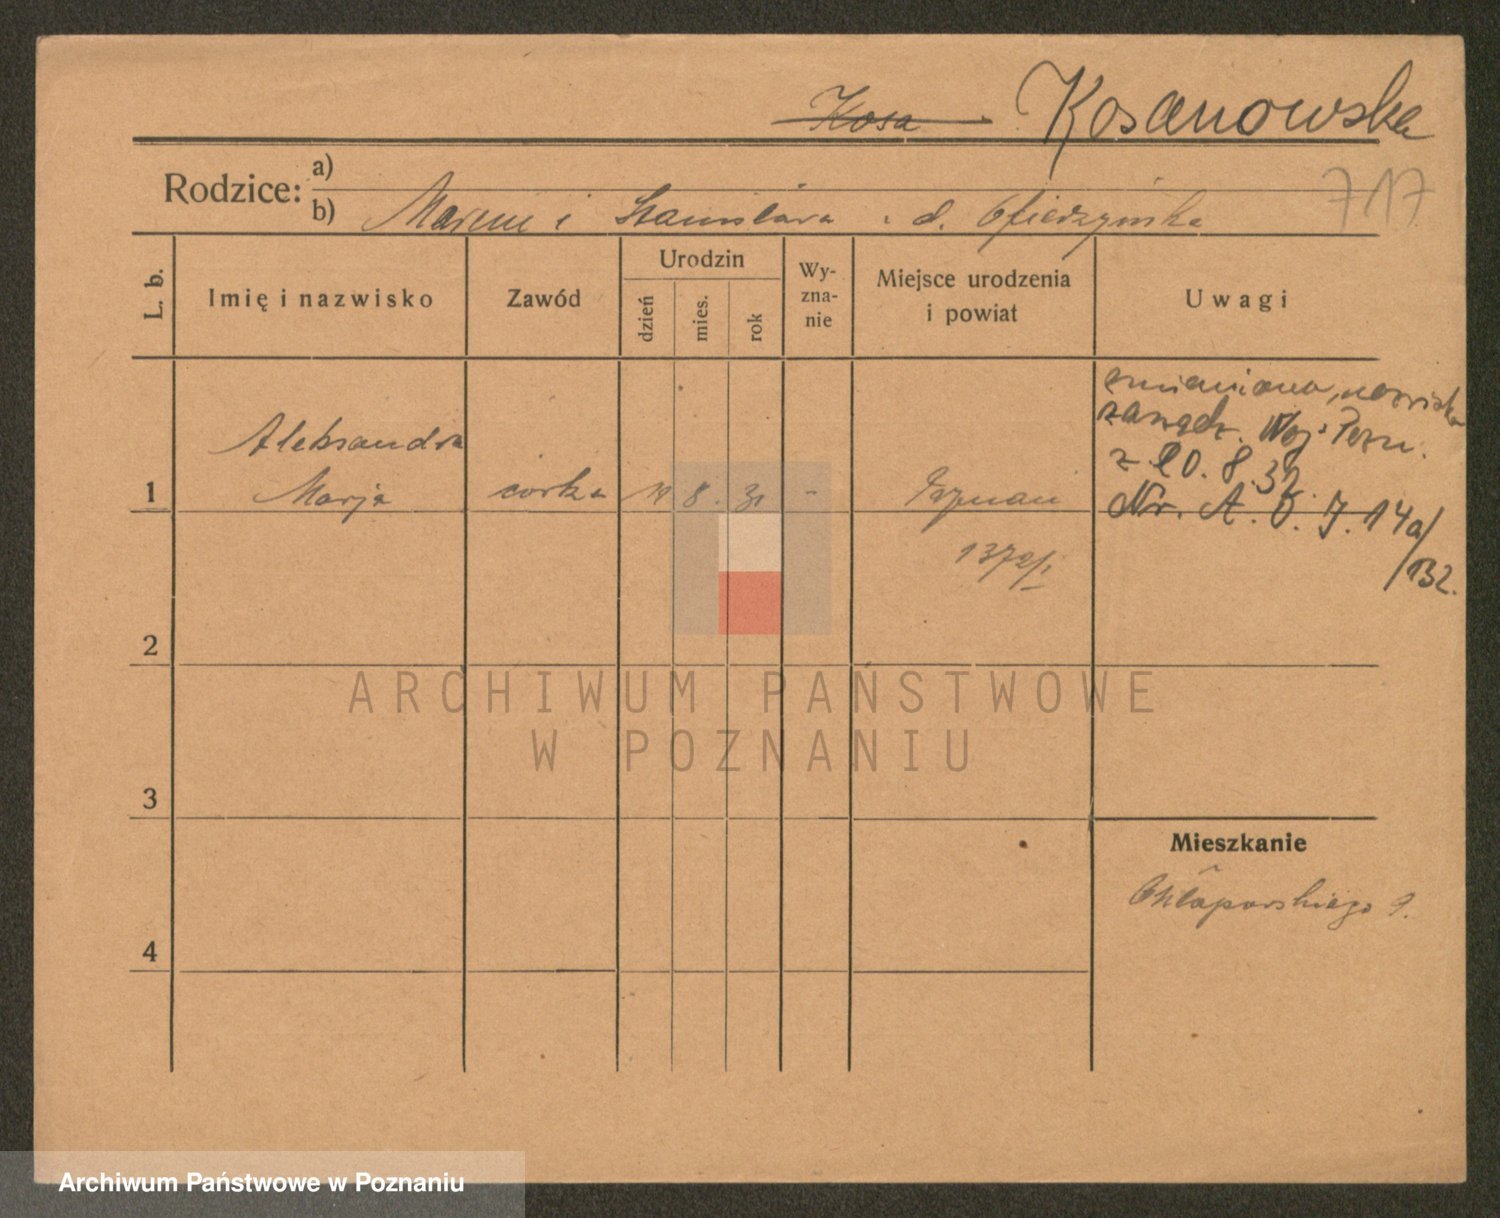 Kosa Kosanowska
717
Rodzice: a)
b) Marcin i Stanisława z d. Ofierzyńska
L. b.
Imię i nazwisko
Zawód
Urodzin
dzień
mies.
rok
Wy-
zna-
nie
Miejsce urodzenia
i powiat
Uwagi
Aleksandra
1 Marja córka 8. 31 - Poznań
1372/I
zmieniono nazwisko
zarządz. Woj. Pozn.
z 20. 8. 32.
Nr. A. O. J. 14a/
/132.
2
3
4
Mieszkanie
Chłapowskiego 9.
ARCHIWUM PAŃSTWOWE
W POZNANIU
Archiwum Państwowe w Poznaniu